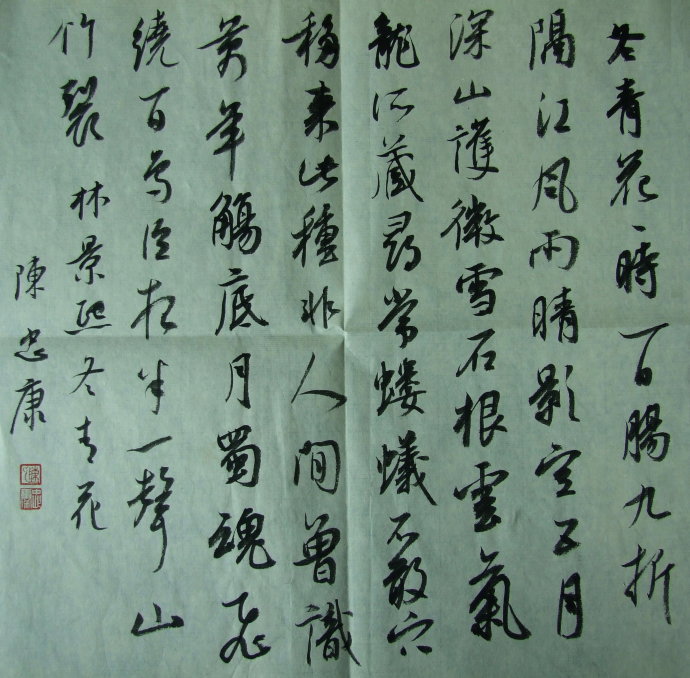 冬青花〻時一日腸九折
隔江風雨晴影空五月
深山護微雪石根雲氣
龍所藏尋常螻蟻不敢穴
移來此種非人間曾識
萬年觴底月蜀魂飛
繞百鳥臣夜半一聲山
竹裂 林景熙冬青花
陳忠康